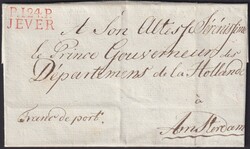 P.124.P.
JEVER
A Son Altesse Sérénissime
le Prince Gouverneur des
Départemens de la Hollande
à
Franc de port.
Amsterdam